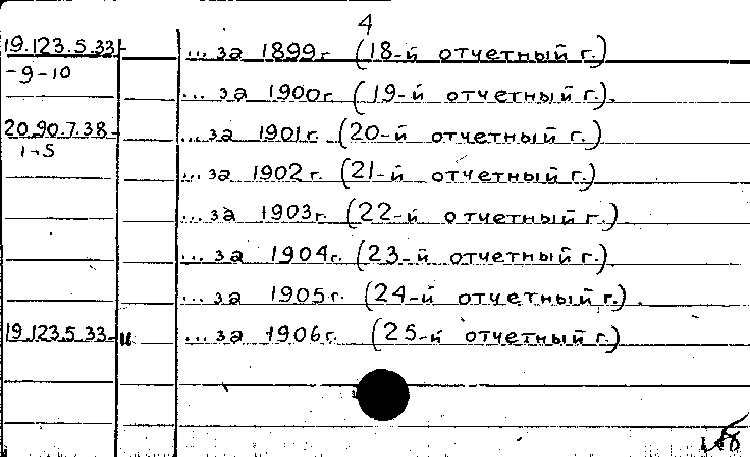 4
19.123.5.33- ... за 1899г (18-й отчетный г.)
-9-10
... за 1900г (19-й отчетный г.).
20.90.7.38- ... за 1901г. (20-й отчетный г.)
1-5
... за 1902г. (21-й отчетный г.)
... за 1903г. (22-й отчетный г.)
... за 1904г. (23-й отчетный г.)
... за 1905г. (24-й отчетный г.).
19.123.5.33-11 ... за 1906г. (25-й отчетный г.)